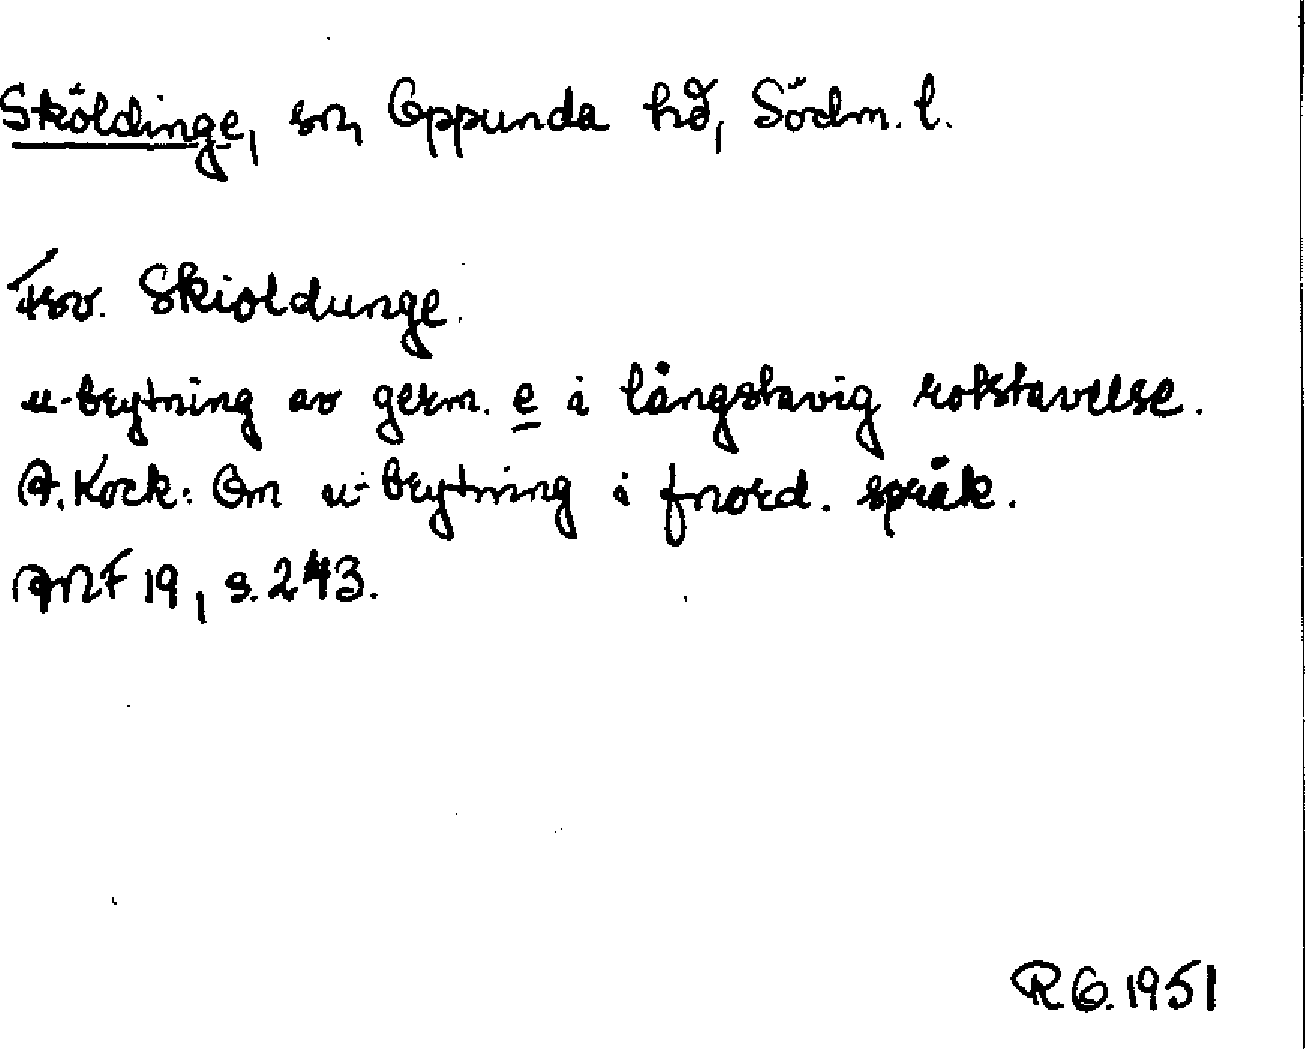 Sköldinge, sn, Oppunda hd, Södm. l.
Fsv. Skioldunge.
u-brytning av germ. e i långstavig rotstavelse.
A. Kock: Om u-brytning i fnord. språk.
ANF 19, s. 243.
R.G. 1951